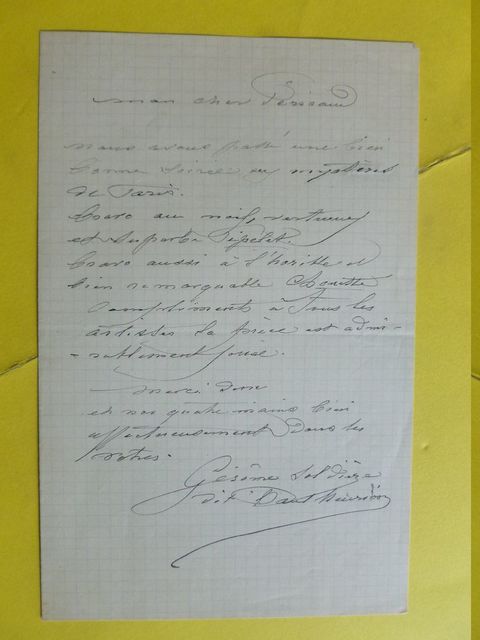 mon cher Péricaud
nous avons passé une bien
bonne soirée aux mystères
de Paris.
bravo au naïf, vertueux
et superbe Pipelet.
bravo aussi à l'horrible et
bien remarquable Chouette
Compliments à tous les
artistes la pièce est admi-
-rablement jouée.
merci donc
et nos quatre mains bien
affectueusement dans les
vôtres.
Gérôme
dit